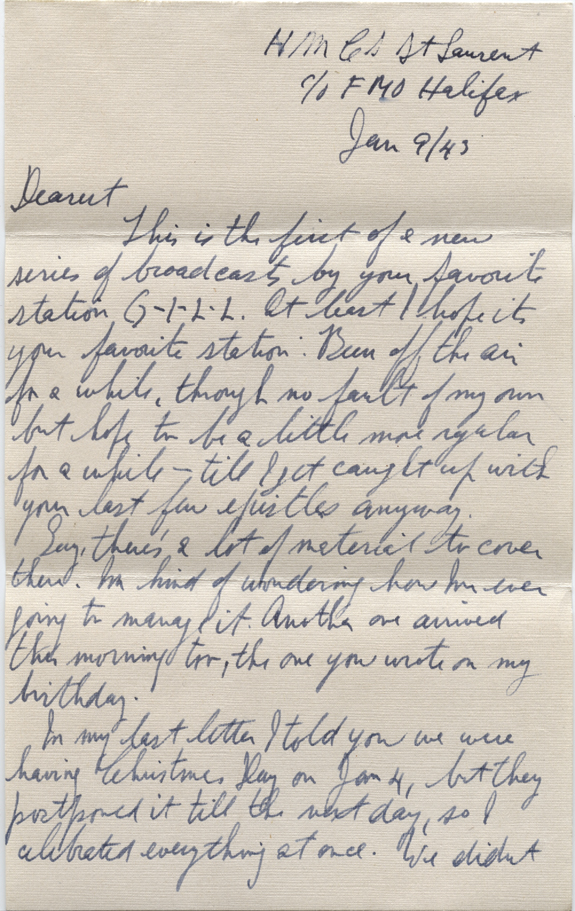 HMCS St Laurent
c/o FMO Halifax
Jan 9/43
Dearest
This is the first of a new
series of broadcasts by your favorite
station G-I-L-L. At least I hope its
your favorite station. Been off the air
for a while, through no fault of my own
but hope to be a little more regular
for a while – till I get caught up with
your last few epistles anyway.
Gey, there's a lot of material to cover
there. Im kind of wondering how Im ever
going to manage it. Another one arrived
this morning too, the one you wrote on my
birthday.
In my last letter I told you we were
having Christmas Day on Jan 4, but they
postponed it till the next day, so I
celibrated everything at once. We didnt